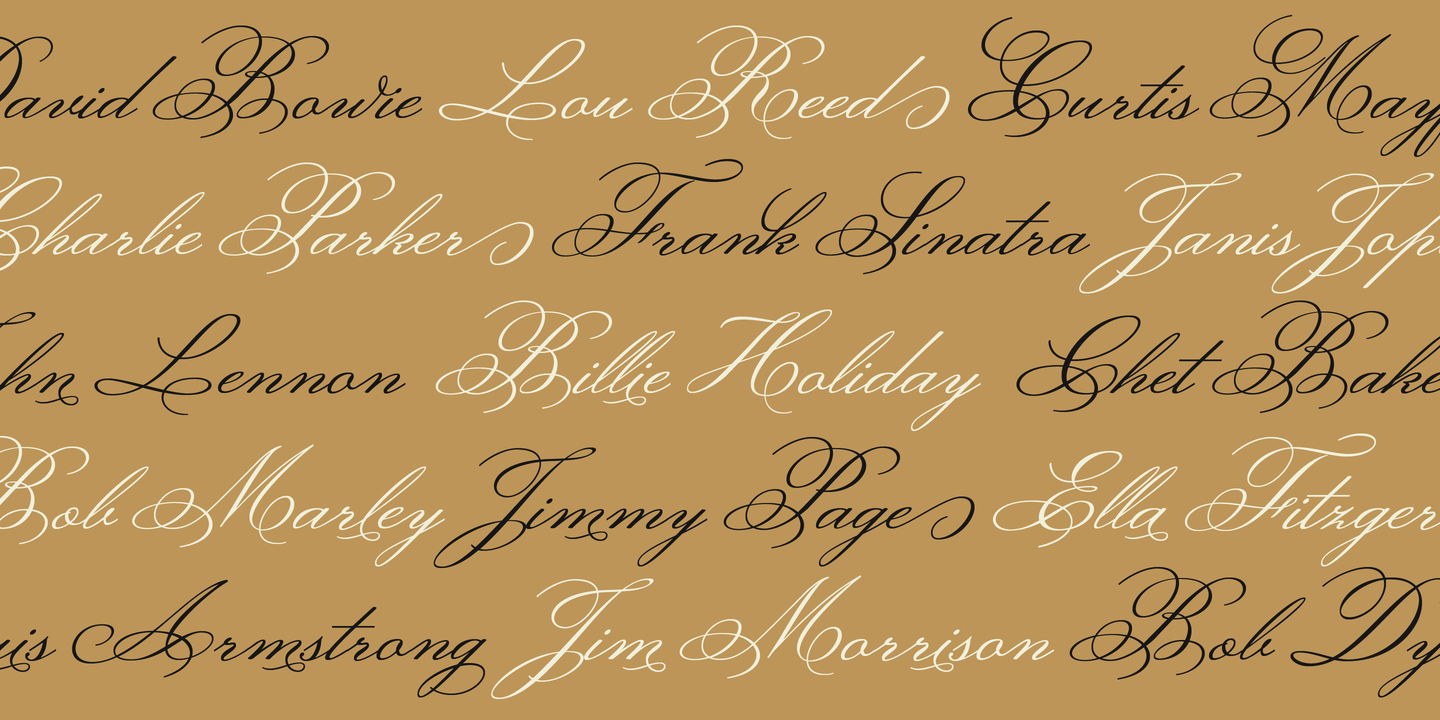 David Bowie Lou Reed Curtis Mayf
Charlie Parker Frank Sinatra Janis Jopl
hn Lennon Billie Holiday Chet Bake
Bob Marley Jimmy Page Ella Fitzger
uis Armstrong Jim Morrison Bob Dy